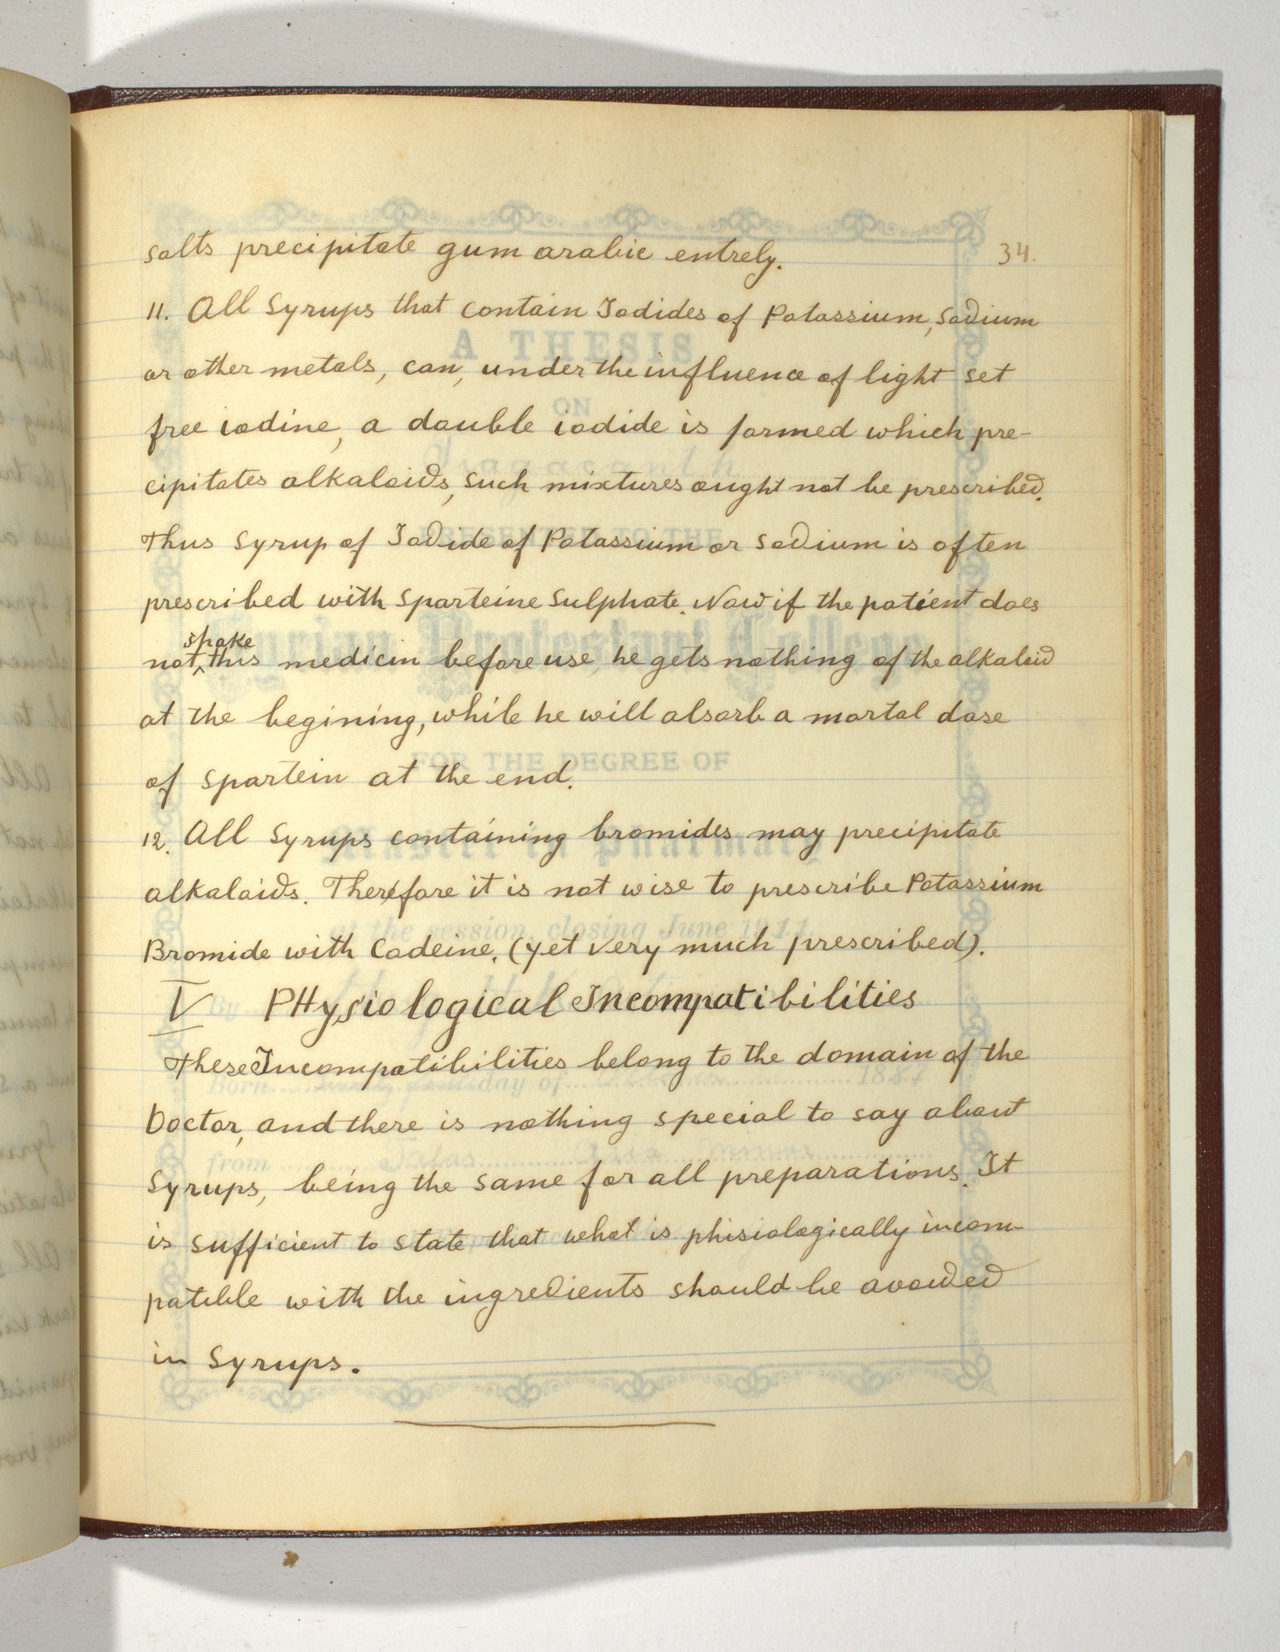 salts precipitate gum arabic entrely. 34.
11. All Syrups that contain Iodides of Potassium, Sodium
or other metals, can, under the influence of light set
free iodine, a double iodide is formed which pre-
cipitates alkaloids, such mixtures ought not be prescribed.
Thus Syrup of Iodide of Potassium or Sodium is often
prescribed with Sparteine Sulphate. Now if the patient does
shake
not, this medicin before use, he gets nothing of the alkaloid
at the begining, while he will absorb a mortal dose
of spartein at the end.
12. All Syrups containing bromides may precipitate
alkaloids. Therefore it is not wise to prescribe Potassium
Bromide with Codeine. (yet very much prescribed).
V PHysiological Incompatibilities
These Incompatibilities belong to the domain of the
Doctor, and there is nothing special to say about
Syrups, being the same for all preparations. It
is sufficient to state that what is phisiologically incom-
patible with the ingredients should be avoided
in Syrups.
A THESIS
ON
PRESENTED TO THE
Syrian Protestant College
FOR THE DEGREE OF
Master in Pharmacy
at the session, closing June 1911
By
Born day of
from